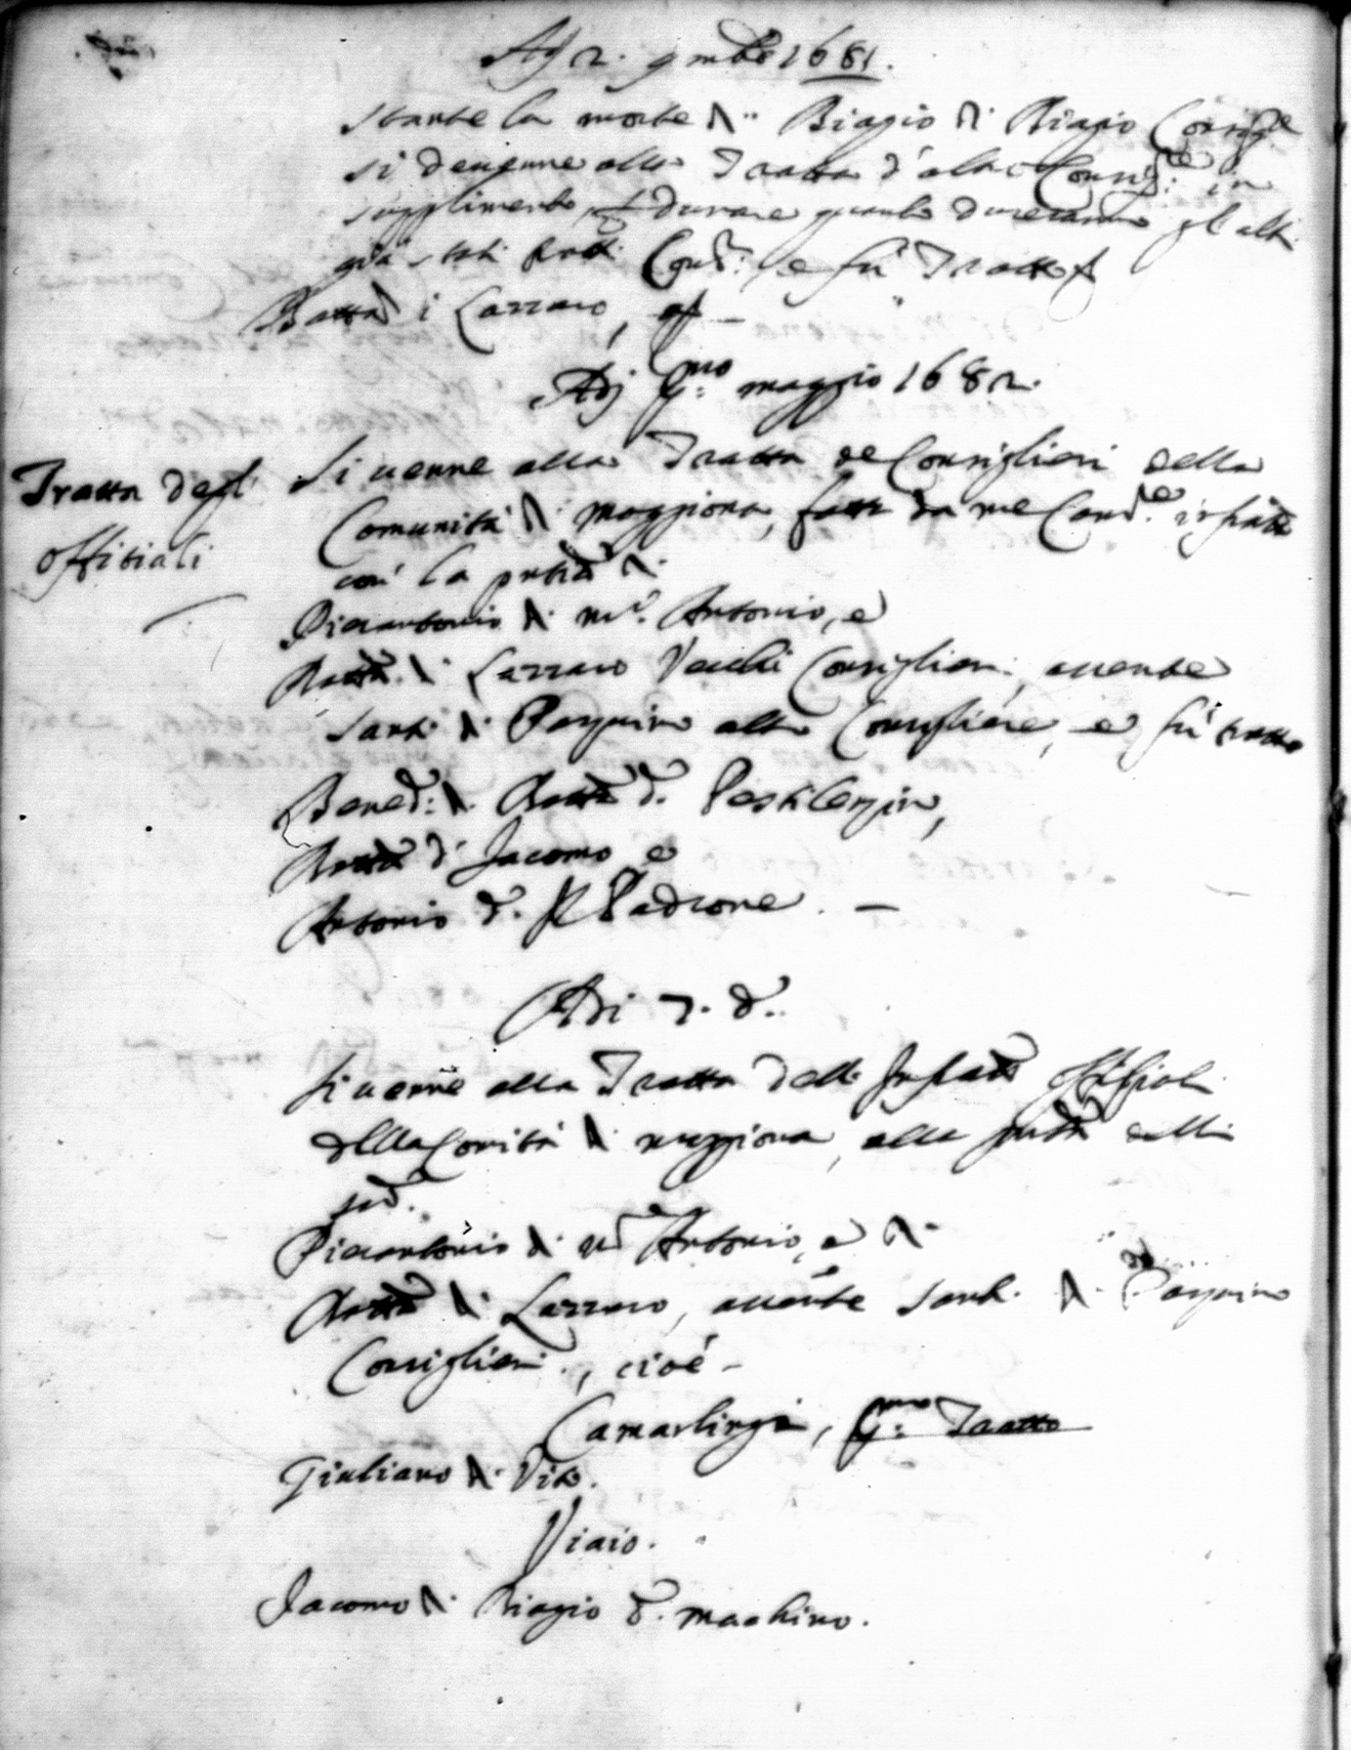 Adj 2. 9mbre 1681.
stante la morte di Biagio di Biagio Consigre
si devenne alla Tratta d'altro Consigre in
supplimento, durare quanto dureranno gl'altri
già stati tratti Consri: e fù Tratto
Batta di Lazzaro,
Adj Pmo maggio 1682.
Tratta degl'
offitiali
Si venne alla Tratta de Consiglieri della
Comunità di moggiona, fatta da me Canre infratto
con' la pntia di
Pierantonio di mo. Antonio, e
Batta di Lazzaro Vecchi Consiglieri, assente
Santi di Pasquino altro Consigliere, e fù tratto
Bened: di Batta d. Pestilenzino,
Batta d' Jacomo e
Antonio d. Padrone. —
Adi 7. do.
Si venne alla Tratta delli Infratti offitiali
della Comità di moggiona, alla pntia delli
sud.
Pierantonio di mo Antonio, e di
Batta di Lazzaro, assente Santi di Pasquino
Consiglieri, cioè -
Camarlingo, Pmo Tratto
Giuliano di Vito.
Viaio.
Jacomo di Biagio d. machino.